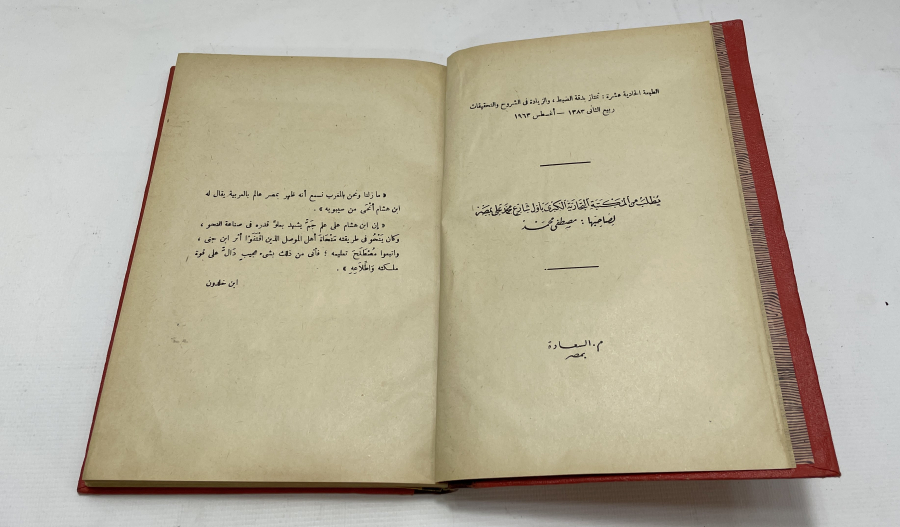 الطبعة الحادية عشرة : تمتاز بدقة الضبط ، والزيادة فى الشروح والتحقيقات
ربيع الثانى ١٣٨٣ — أغسطس ١٩٦٣
يُطلبُ من المكتبة التجارية الكبرى بأول شارع محمد على بمصر
لصاحبها : مصطفى محمد
م . السعادة
بمصر
« ما زلنا ونحن بالمغرب نسمع أنه ظهر بمصر عالم بالعربية يقال له
ابن هشام أنْحَى من سيبويه » .
« إن ابن هشام على علم جَمٍّ يشهد بعلوّ قدره فى صناعة النحو ،
وكان يَنْحُو فى طريقته مَنْحَاةَ أهل الموصل الذين اقْتَفَوْا أثر ابن جنى ،
واتبعوا مُصْطَلَحَ تعليمه ؛ فأتى من ذلك بشىء عجيب دَالٍّ على قوة
ملكته وَاطِّلَاعِهِ » .
ابن خلدون